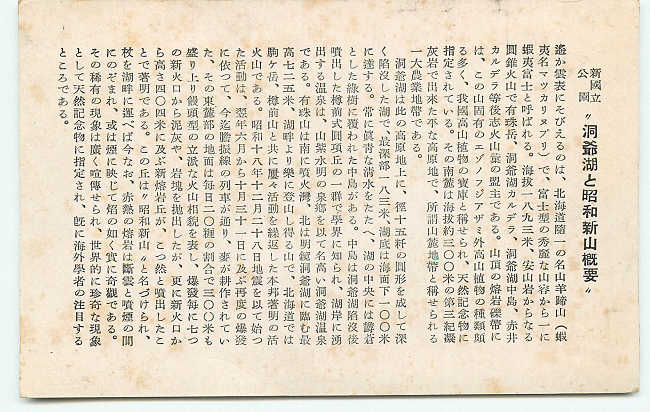 新國立公園 〃洞爺湖と昭和新山概要〃
遙か雲表にそびえるのは、北海道隨一の名山羊蹄山（蝦
夷名マツカリヌプリ）で、富士型の秀麗な山容から一に
蝦夷富士と呼ばれる。海拔一八九三米、安山岩からなる
圓錐火山で有珠岳、洞爺湖カルデラ、洞爺湖中島、赤井
カルデラ等後志火山彙の盟主である。山頂の熔岩礫帶に
は、この山固有のエゾノフジアザミ外高山植物の種類頗
る多く、我國高山植物の寶庫と稱せられ、天然記念物に
指定されている。その南麓は海拔約三〇〇米の第三紀凝
灰岩で出來た平な高原地で、所謂山麓地帶と稱せられる
一大農業地帶である。
洞爺湖は此の高原地上に、徑十五粁の圓形を成して深
く陷沒した湖で、最深部一八三米、湖底は海面下一〇〇米
に達する。常に眞靑な淸水をたたへ、湖の中央には鬱蒼
とした綠樹に覆われた中島がある。中島は洞爺湖陷沒後
噴出した樽前式圓頂丘の一群で學界に知られ、湖岸に湧
出する溫泉は、山紫水明の泉鄕を以て名高い洞爺湖溫泉
である。有珠山は南に噴火灣、北は明鏡洞爺湖に臨む最
高七二五米、湖畔より樂に登山し得る山で、北海道では
駒ヶ岳、樽前山と共に屢々活動を繰返した本邦著明の活
火山である。昭和十八年十二月二十八日地震を以て始つ
た活動は、翌年六月から十月三十一日に及ぶ再度の爆發
に依つて、今迄膽振線の列車が通り、麥が耕作されてい
た、その東麓部の地面は毎日二〇糎の割合で三〇〇米も
盛り上り饅頭型の立派な火山相貌を表し、爆發毎に七つ
の新火口から泥灰や、岩塊を抛出したが、更に新火口か
ら高さ四〇四米に及ぶ新熔岩丘が、こつ然と噴出したこ
とで著明である。この丘は〃昭和新山〃と名づけられ、
杖を湖畔に運べば今なお、赤熱の熔岩は斷雲と噴煙の間
にのぞまれ、或は煙に映じて焔の如く實に奇觀である。
その稀有の現象は廣く喧傳せられ、世界的に珍奇な現象
として天然記念物に指定され、旣に海外學者の注目する
ところである。